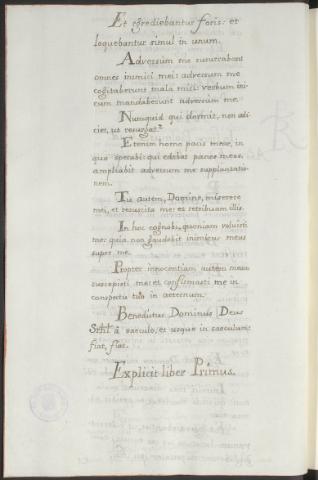 Et egrediebantur foris: et
loquebantur simul in unum.
Adversum me susurrabant
omnes inimici mei: adversum me
cogitaberunt mala mihi: verbum ini-
cum mandaberunt adversum me.
Numquid qui dormit, non adi-
ciet, ut resurgat?
Etenim homo pacis meae, in
quo sperabi: qui edebat panes meos,
ampliabit adversum me supplantatio-
nem.
Tu autem, Domine, miserere
mei, et resuscita me: et retribuam illis.
In hoc cognobi, quoniam voluisti
me: quia non gaudebit inimicus meus
super me.
Propter innocentiam autem meam
suscepisti me: et confirmasti me in
conspectu tuo in aeternum.
Benedictus Dominus Deus
à saeculo, et usque in saeculum:
fiat, fiat.
Explicit liber Primus.